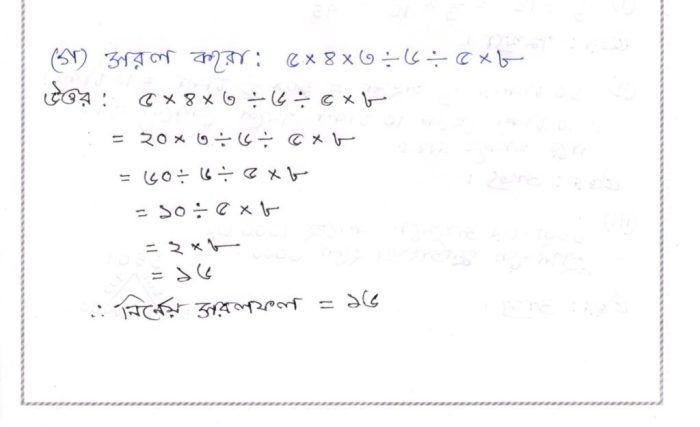 (গ) সরল করো: ৫×৪×৩÷৬÷৫×৮
উত্তর: ৫×৪×৩÷৬÷৫×৮
= ২০×৩÷৬÷৫×৮
= ৬০÷৬÷৫×৮
= ১০÷৫×৮
= ২×৮
= ১৬
∴ নির্ণেয় সরলফল = ১৬